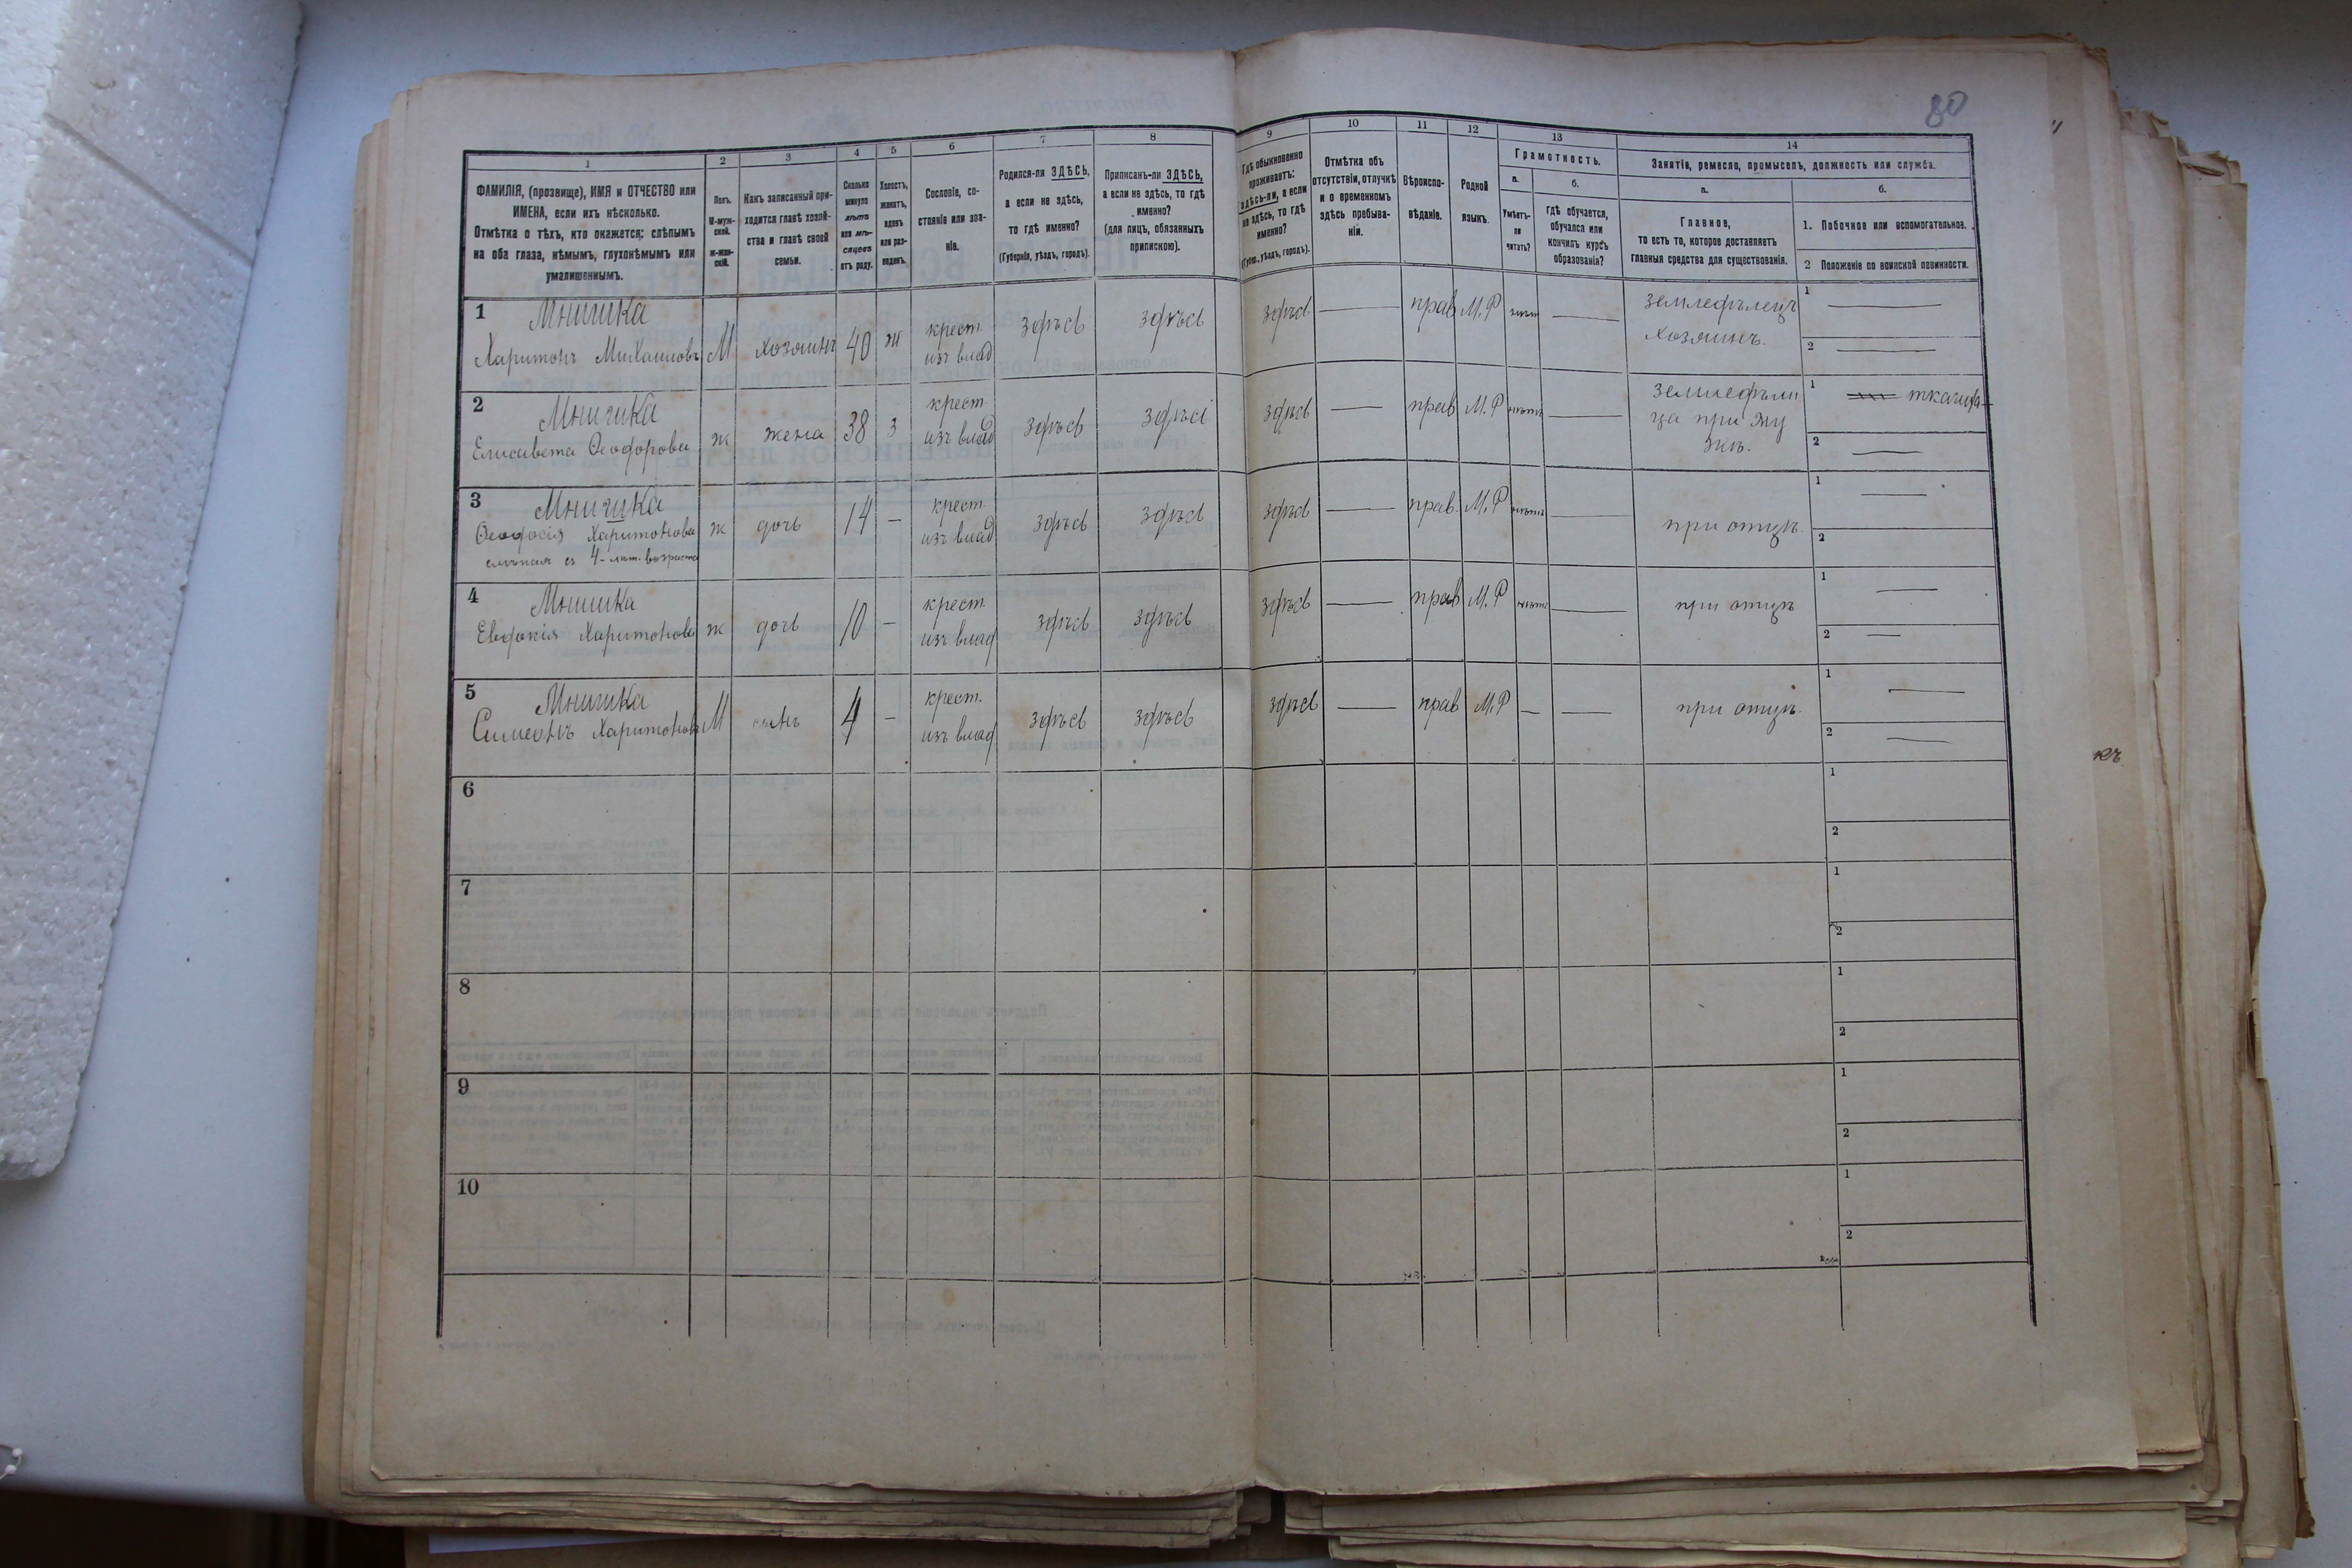 80
1 2 3 4 5 6 7 8 9 10 11 12 13 14
ФАМИЛІЯ, (прозвище), ИМЯ и ОТЧЕСТВО или
ИМЕНА, если ихъ нѣсколько.
Отмѣтка о тѣхъ, кто окажется: слѣпымъ
на оба глаза, нѣмымъ, глухонѣмымъ или
умалишеннымъ.
Полъ.
М-муж-
ской.
Ж-жен-
скій.
Какъ записанный при-
ходится главѣ хозяй-
ства и главѣ своей
семьи.
Сколько
минуло
лѣтъ
или мѣ-
сяцевъ
отъ роду.
Холостъ,
женатъ,
вдовъ
или раз-
веденъ.
Сословіе, со-
стояніе или зва-
ніе.
Родился-ли ЗДѢСЬ,
а если не здѣсь,
то гдѣ именно?
(Губернія, уѣздъ, городъ).
Приписанъ-ли ЗДѢСЬ,
а если не здѣсь, то гдѣ
именно?
(для лицъ, обязанныхъ
припискою).
Гдѣ обыкновенно
проживаетъ:
здѣсь-ли, а если
не здѣсь, то гдѣ
именно?
(Губерн., уѣздъ, городъ).
Отмѣтка объ
отсутствіи, отлучкѣ
и о временномъ
здѣсь пребыва-
ніи.
Вѣроиспо-
вѣданіе.
Родной
языкъ.
Грамотность.
а.
Умѣетъ-
ли
читать?
б.
Гдѣ обучается,
обучался или
кончилъ курсъ
образованія?
Занятіе, ремесло, промыселъ, должность или служба.
а.
Главное,
то есть то, которое доставляетъ
главныя средства для существованія.
б.
1. Побочное или вспомогательное.
2 Положеніе по воинской повинности.
1 Мнишка
Харитонъ Михаиловъ М хозяинъ 40 ж крест. изъ влад здѣсь здѣсь здѣсь — прав М.Р — землѣдѣлецъ
хозяинъ.
1 —
2 —
2 Мнишка
Елисавета Ѳеодорова ж жена 38 з крест. изъ влад здѣсь здѣсь здѣсь — прав М.Р нѣтъ —
1 ткачиха
2 —
3 Мнишка
Ѳеодосія Харитонова
слѣпая съ 4-лѣт. возраста
ж дочь 14 — крест. изъ влад здѣсь здѣсь здѣсь — прав. М.Р нѣтъ — при отцѣ.
1 —
2
4 Мнишка
Евдокія Харитонова ж дочь 10 — крест. изъ влад здѣсь здѣсь здѣсь — прав М.Р нѣтъ — при отцѣ
1 —
2 —
5 Мнишка
Симеонъ Харитоновъ М сынъ 4 — крест. изъ влад здѣсь здѣсь здѣсь — прав М.Р — — при отцѣ.
1 —
2 —
6
1
2
7
1
2
8
1
2
9
1
2
10
1
2